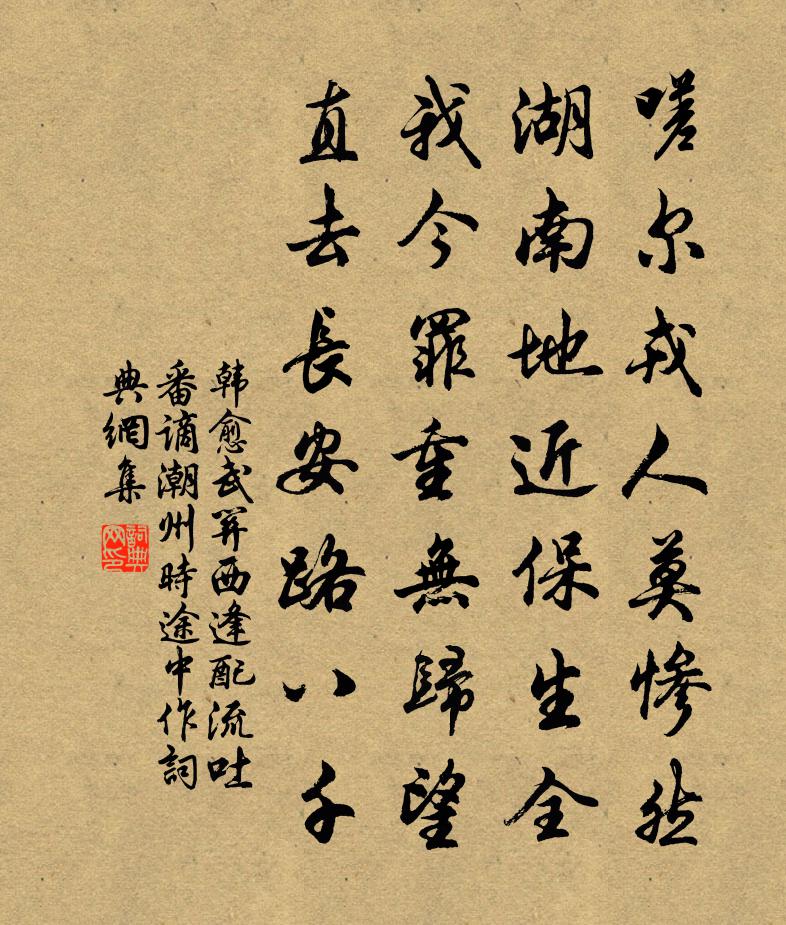 嗟尔戎人莫惨然
湖南地近保生全
我今罪重無歸望
直去長安路八千
韩愈武關西逢配流吐
番谪潮州時途中作詞
典網集
詞典
网印